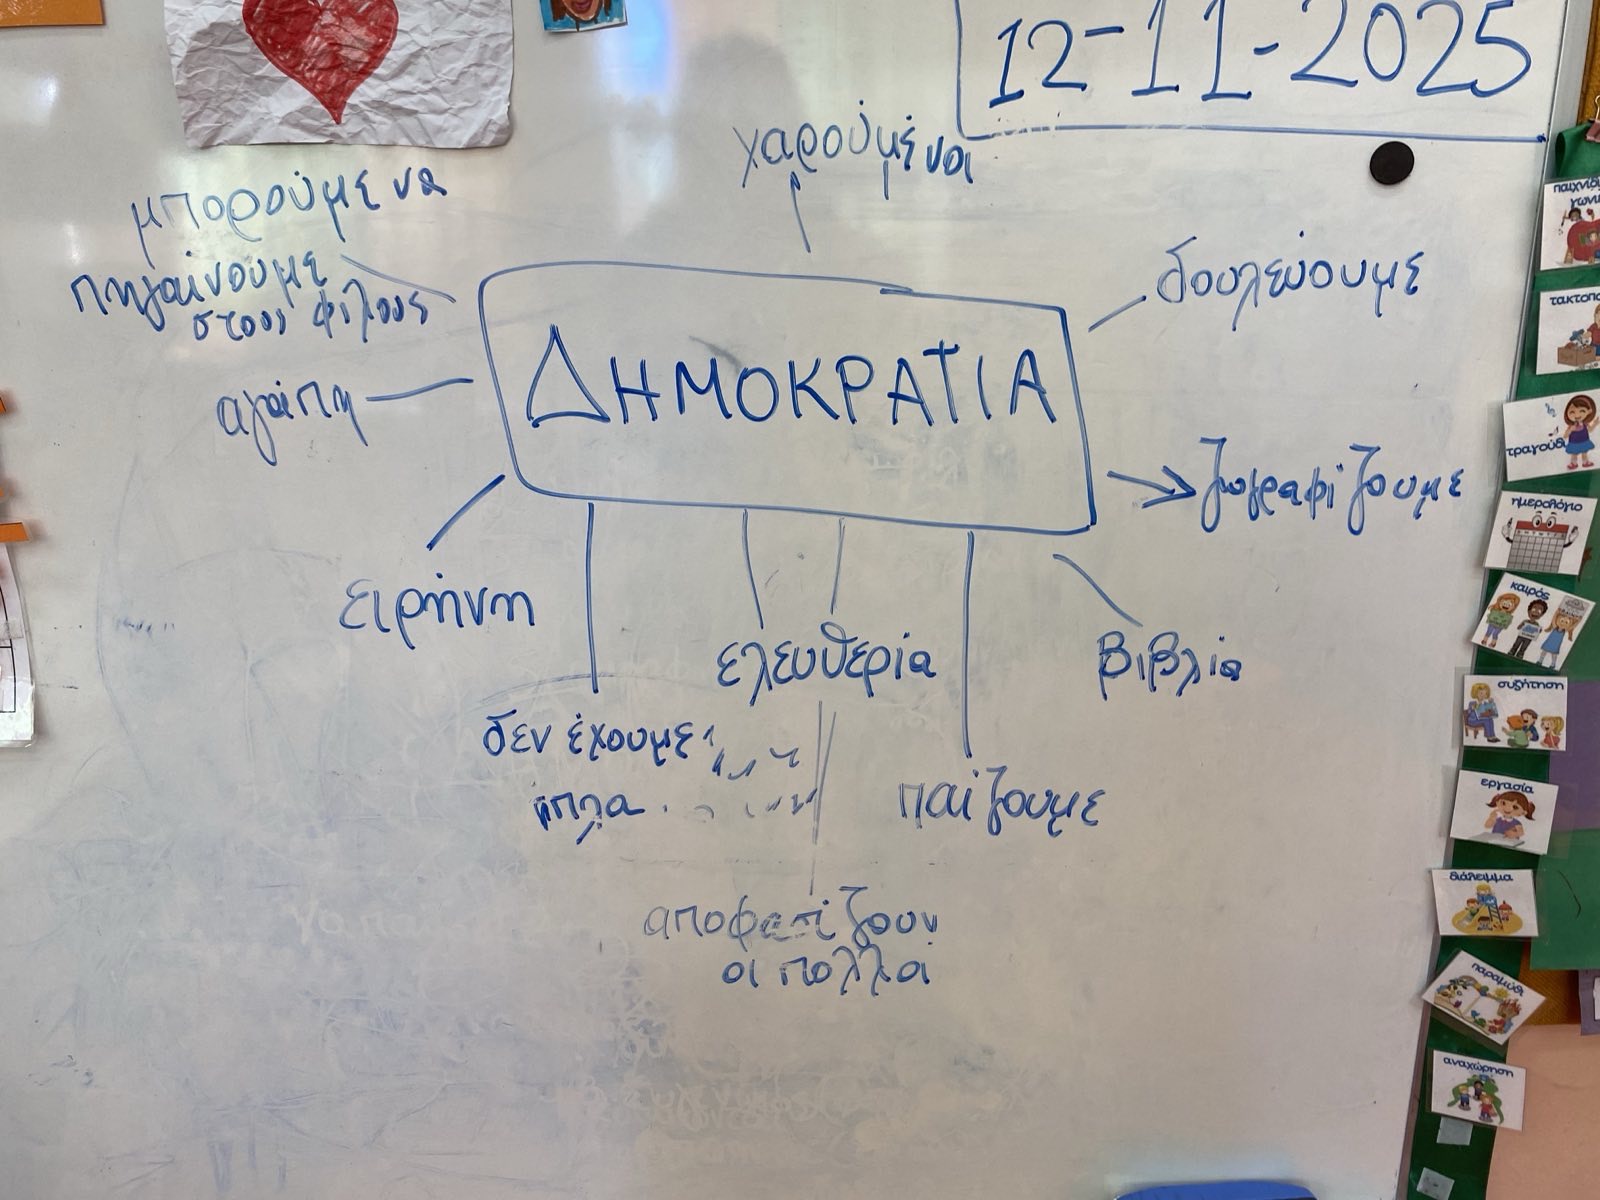 12-11-2025
χαρούμενοι
μπορούμε να
πηγαίνουμε
στους φίλους
δουλεύουμε
ΔΗΜΟΚΡΑΤΙΑ
αγάπη
ζωγραφίζουμε
ειρήνη
ελευθερία
βιβλία
δεν έχουμε
όπλα
παίζουμε
αποφασίζουν
οι πολλοί
τραγούδι
ημερολόγιο
καιρός
συζήτηση
εργασία
διάλειμμα
παραμύθι
αναχώρηση